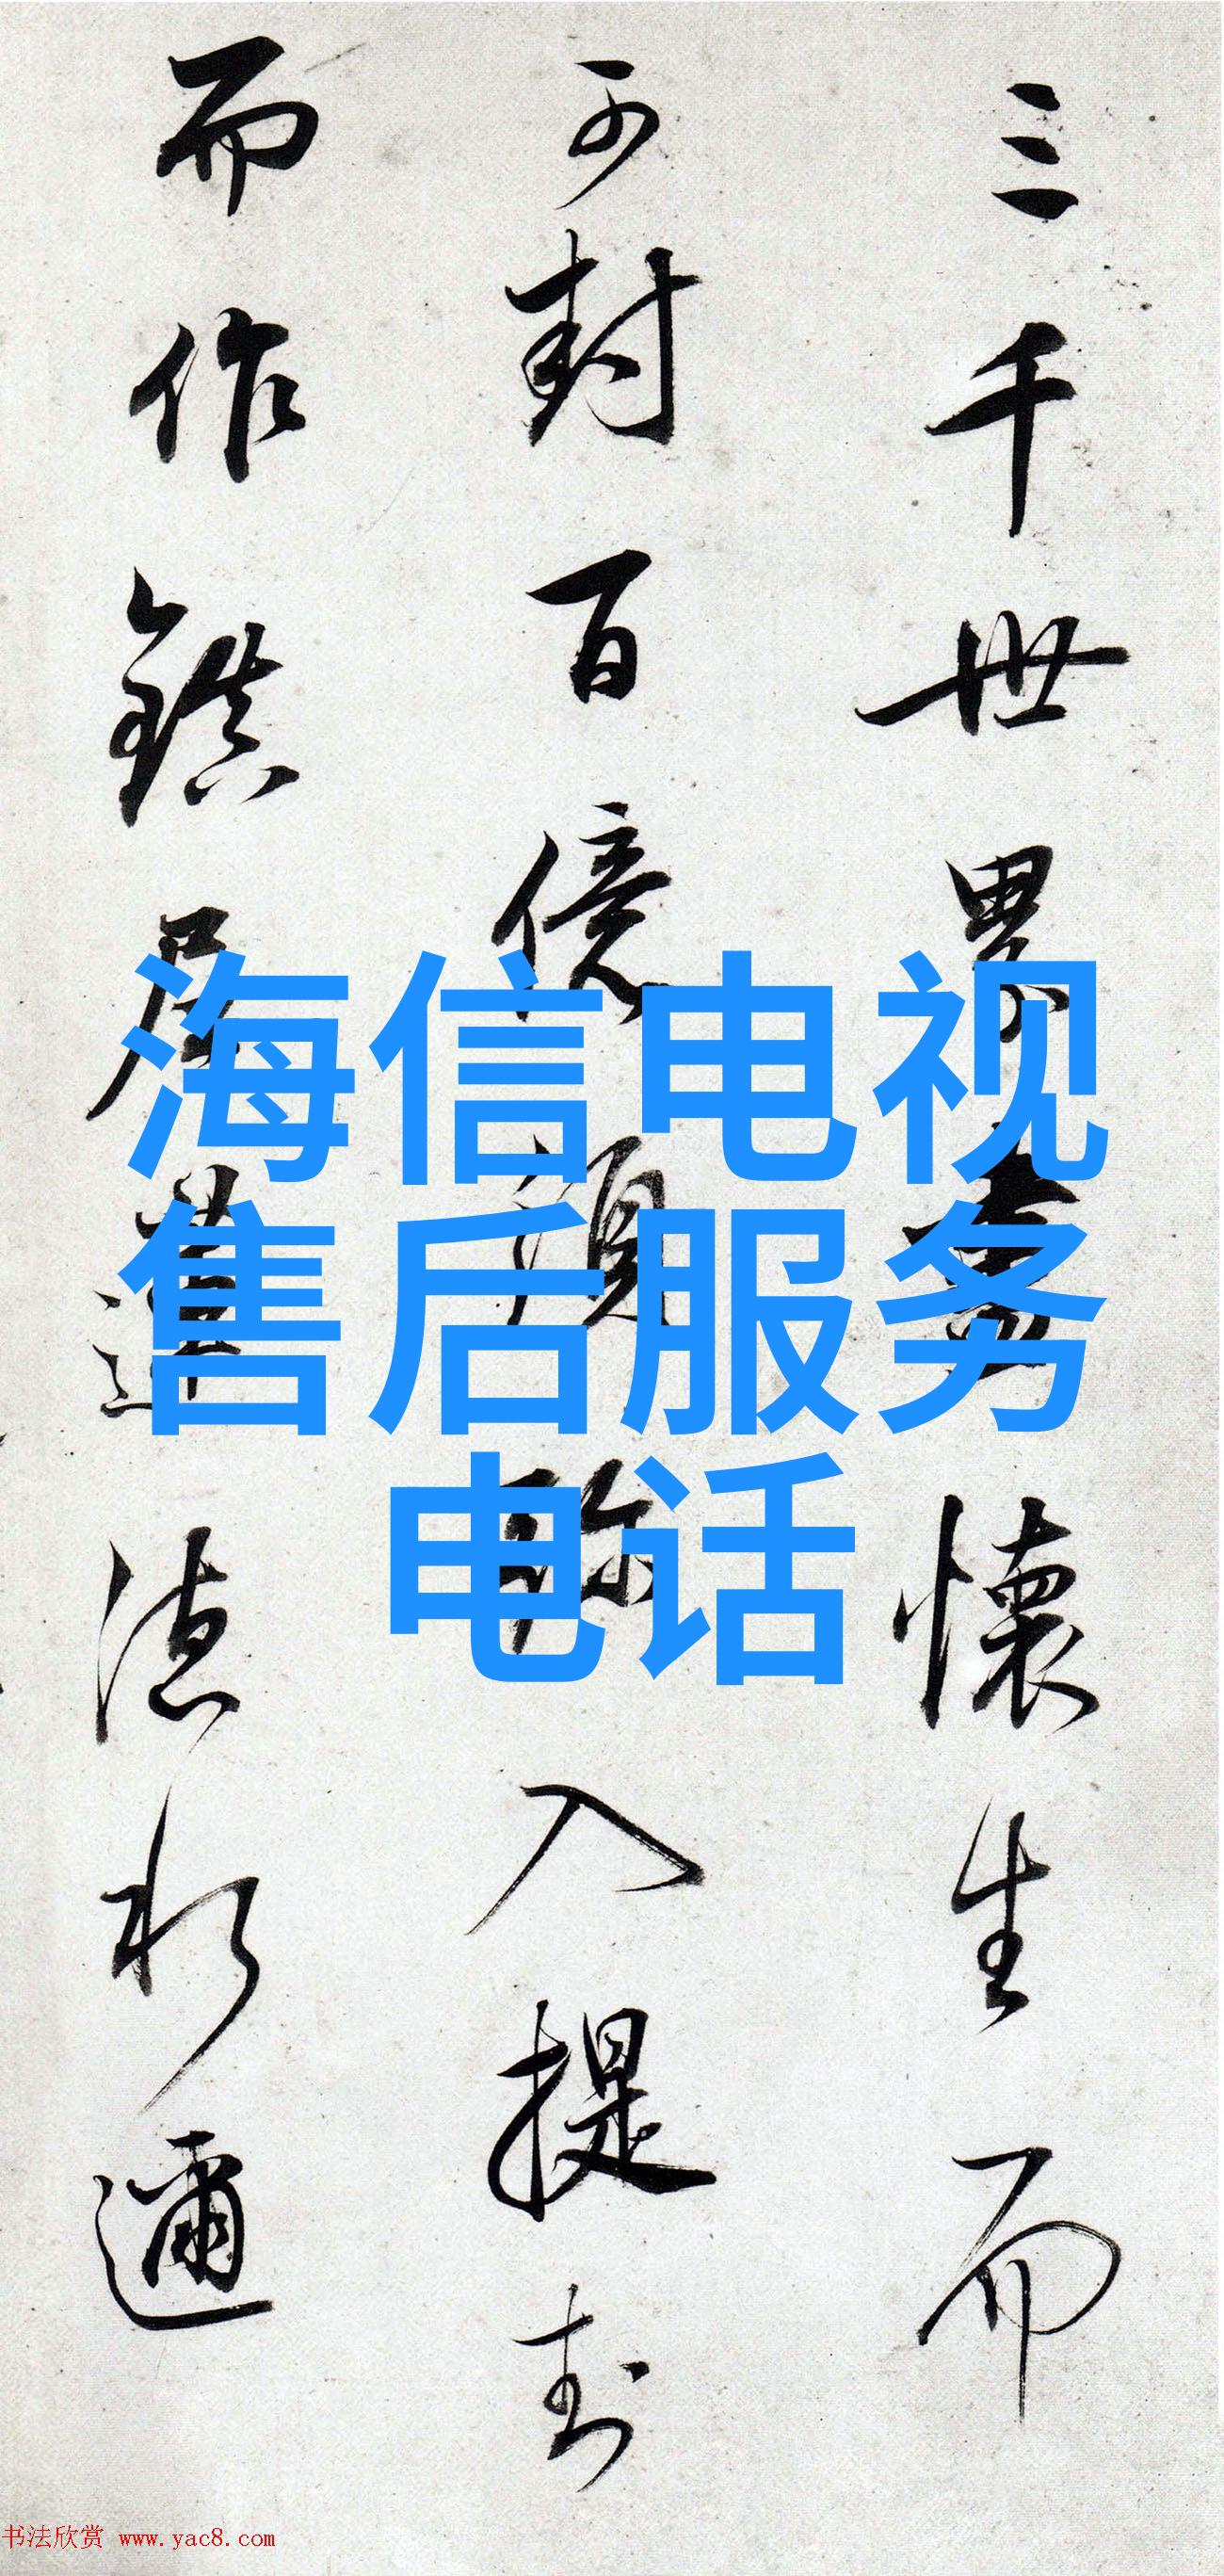 三千世界 懷生而
可封百億 入提封
而作鎮居 德水邇
海信电视
售后服务
电话
书法欣赏 www.yac8.com